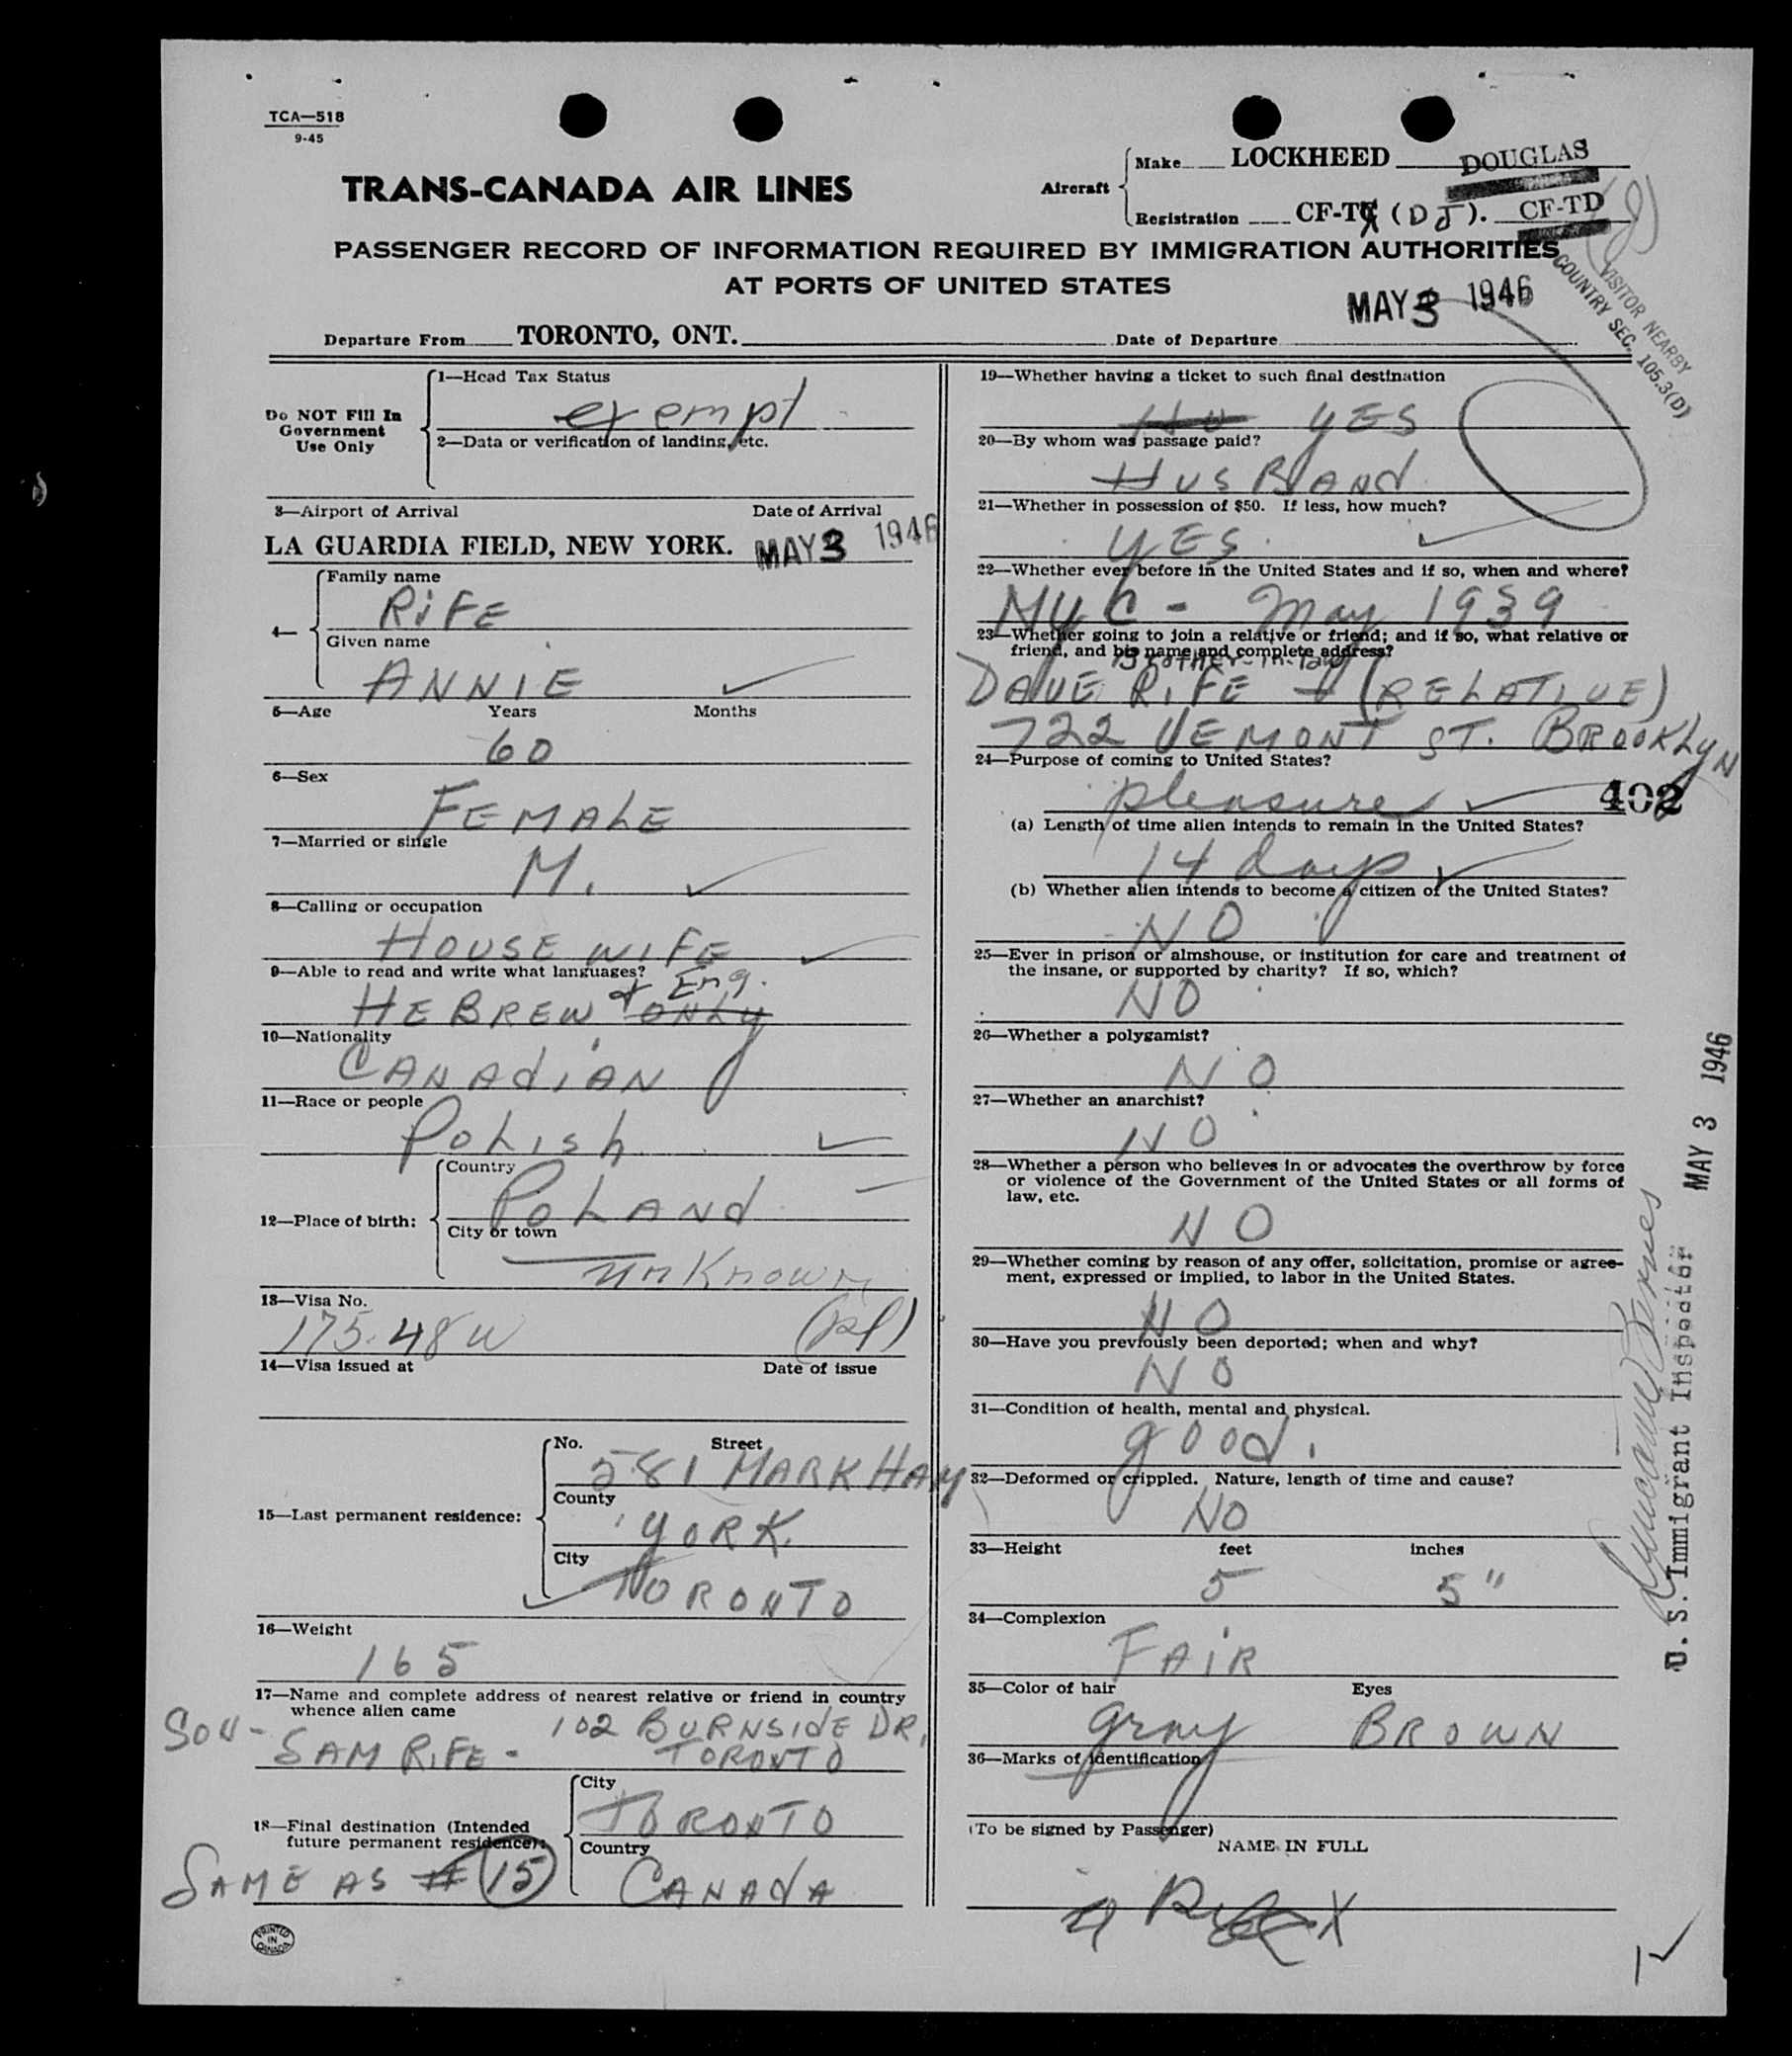 TCA—518
9-45
TRANS-CANADA AIR LINES
Aircraft
Make LOCKHEED DOUGLAS
Registration CF-TC (DJ). CF-TD
PASSENGER RECORD OF INFORMATION REQUIRED BY IMMIGRATION AUTHORITIES
AT PORTS OF UNITED STATES
VISITOR NEARBY
COUNTRY SEC. 105.3(D)
MAY 3 1946
Departure From TORONTO, ONT. Date of Departure
Do NOT Fill In
Government
Use Only
1—Head Tax Status
exempt
2—Data or verification of landing, etc.
3—Airport of Arrival Date of Arrival
LA GUARDIA FIELD, NEW YORK. MAY 3 1946
4—
Family name
RIFE
Given name
ANNIE
5—Age Years Months
60
6—Sex
FEMALE
7—Married or single
M.
8—Calling or occupation
HOUSE WIFE
9—Able to read and write what languages?
& Eng.
HEBREW ONLY
10—Nationality
CANADIAN
11—Race or people
Polish
12—Place of birth:
Country
POLAND
City or town
Unknown
13—Visa No.
175.48W
14—Visa issued at Date of issue
15—Last permanent residence:
No. Street
581 MARKHAM
County
YORK
City
TORONTO
16—Weight
165
17—Name and complete address of nearest relative or friend in country
whence alien came
SON - 102 BURNSIDE DR,
SAM RIFE - TORONTO
18—Final destination (Intended
future permanent residence):
SAME AS # 15
City
TORONTO
Country
CANADA
PRINTED
IN
CANADA
19—Whether having a ticket to such final destination
YES
20—By whom was passage paid?
HUSBAND
21—Whether in possession of $50. If less, how much?
YES.
22—Whether ever before in the United States and if so, when and where?
NYC - May 1939
23—Whether going to join a relative or friend; and if so, what relative or
friend, and his name and complete address?
Brother-in-law
DAVE RIFE (RELATIVE)
722 VEMONT ST. BROOKLYN
24—Purpose of coming to United States?
pleasure
402
(a) Length of time alien intends to remain in the United States?
14 days
(b) Whether alien intends to become a citizen of the United States?
NO
25—Ever in prison or almshouse, or institution for care and treatment of
the insane, or supported by charity? If so, which?
NO
26—Whether a polygamist?
NO
27—Whether an anarchist?
NO
28—Whether a person who believes in or advocates the overthrow by force
or violence of the Government of the United States or all forms of
law, etc.
NO
29—Whether coming by reason of any offer, solicitation, promise or agree-
ment, expressed or implied, to labor in the United States.
NO
30—Have you previously been deported; when and why?
NO
31—Condition of health, mental and physical.
good.
32—Deformed or crippled. Nature, length of time and cause?
NO
33—Height feet inches
5 5"
34—Complexion
FAIR
35—Color of hair Eyes
gray BROWN
36—Marks of identification
(To be signed by Passenger)
NAME IN FULL
MAY 3 1946
U. S. Immigrant Inspector